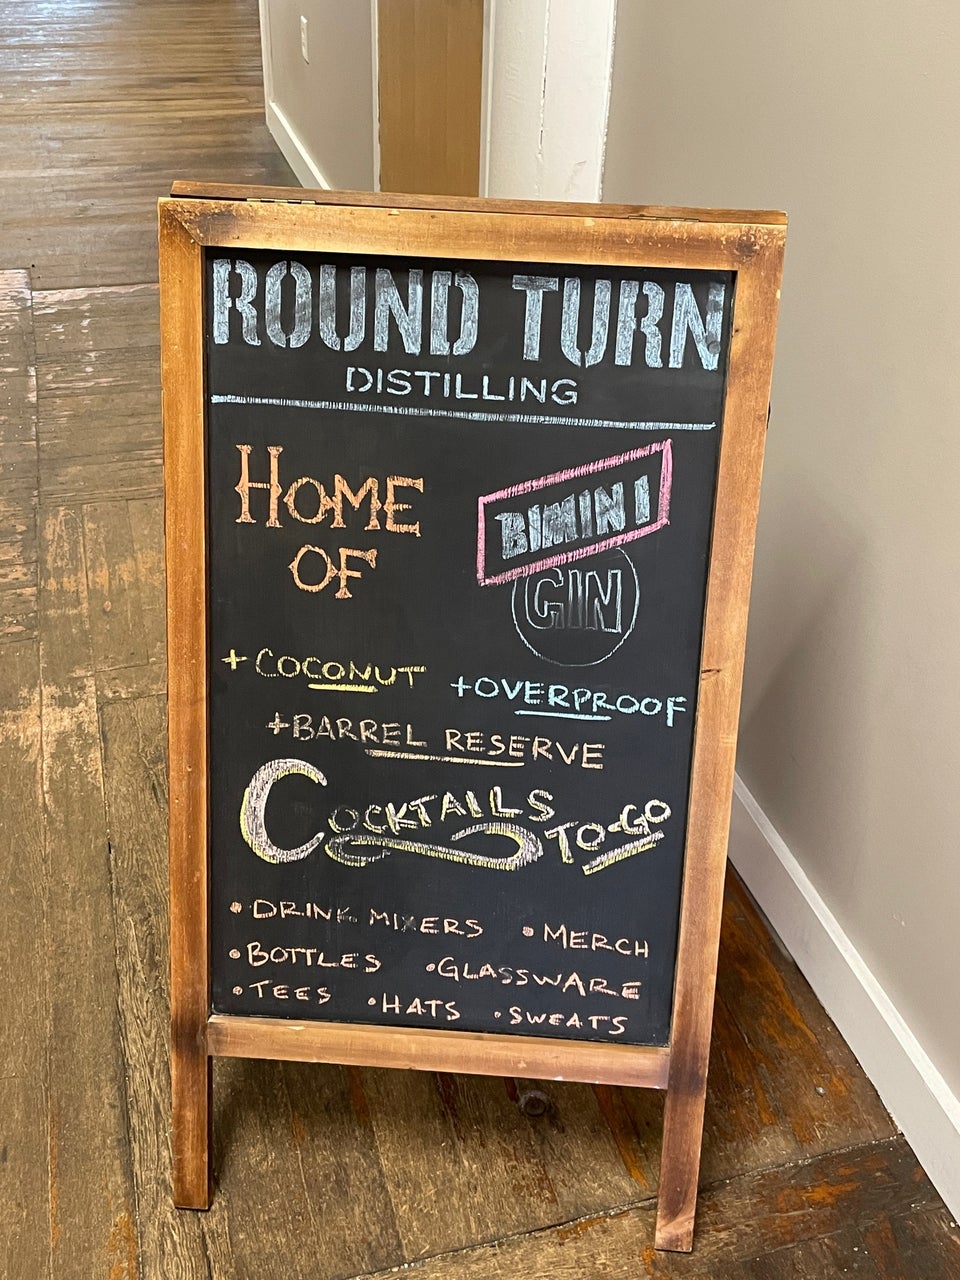 ROUND TURN
DISTILLING
HOME
OF
BIMINI
GIN
+COCONUT
+OVERPROOF
+BARREL RESERVE
COCKTAILS TO-GO
• DRINK MIXERS
• MERCH
• BOTTLES
• GLASSWARE
• TEES • HATS • SWEATS